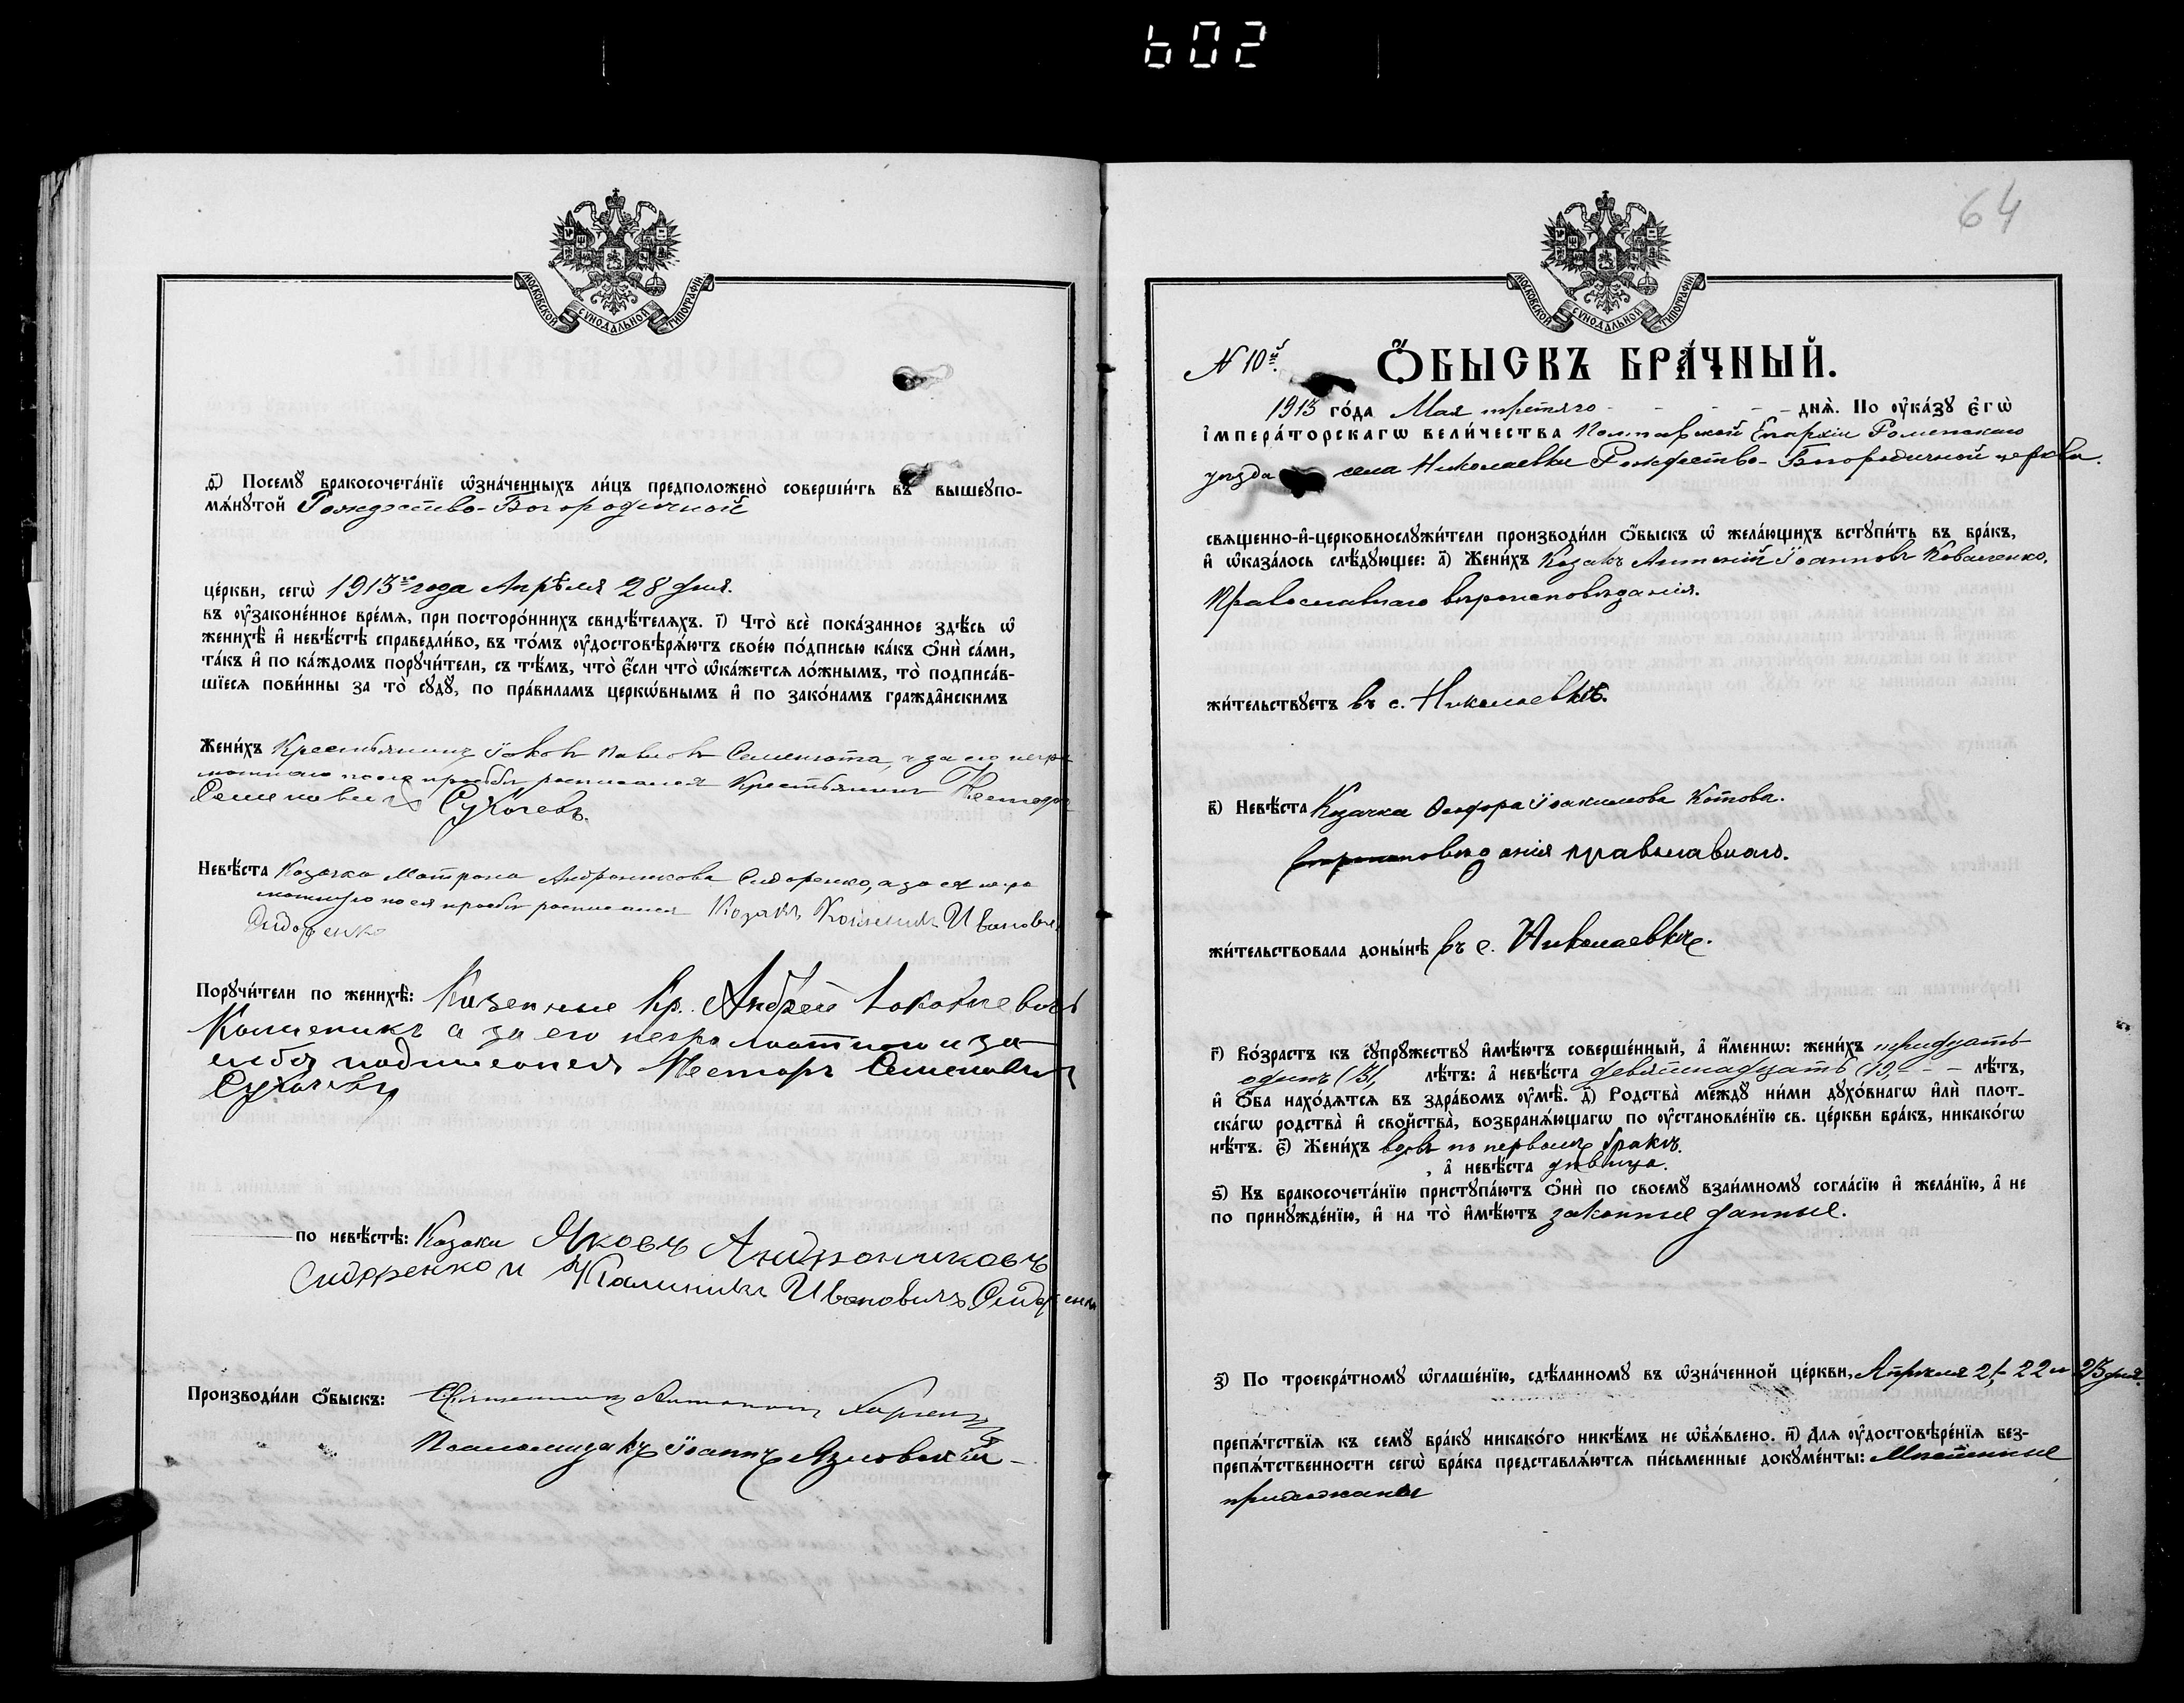 602
МОСКОВСКОЙ СѴНОДАЛЬНОЙ ТИПОГРАФІИ.
д҃і) Посемꙋ̀ бракосочета́нїе ѡ҆зна́ченныхъ ли́цъ предположено̀ соверши́ть въ вышеꙋпо-
мѧ́нꙋтой Рождество-Богородичной
це́ркви, сегѡ̀ 1913го года Апрѣля 28 дня.
въ ᲂу҆законе́нное вре́мѧ, при посторо́ннихъ свидѣ́телѧхъ. і҃) Что̀ всѐ пока́занное здѣ́сь ѡ҆
женихѣ̀ и҆ невѣ́стѣ справедли́во, въ то́мъ ᲂу҆достовѣрѧ́ютъ свое́ю по́дписью ка́къ ѻ҆нѝ са́ми,
та́къ и҆ по ка́ждомъ порꙋчи́тели, съ тѣ́мъ, что̀ є҆́сли что̀ ѡ҆ка́жетсѧ ло́жнымъ, то̀ подписа́в-
шїесѧ пови́нны за то̀ сꙋдꙋ̀, по пра́виламъ церкѡ́внымъ и҆ по зако́намъ гражда̂нскимъ
Жени́хъ Крестьянинъ Іаковъ Павловъ Семенюта, а за его негра-
мотнаго по его просьбѣ росписался Крестьянинъ Несторъ
Семеновичъ Сукачевъ.
Невѣ́ста Козачка Матрона Андроникова Сидоренко, а за ея негра
мотную по ея просьбѣ росписался Козакъ Калиникъ Ивановъ
Сидоренко
Порꙋчи́тели по женихѣ̀: Казенные Кр. Андрей
а за его неграмотнаго и за
себя подписался Несторъ Семеновичъ
Сукачевъ
по невѣ́стѣ: Козаки Яковъ Андрониковъ
Сидоренко и Калиникъ Ивановичъ Сидоренко
Производи́ли ѻ҆́быскъ: Священникъ
Псаломщикъ Іоаннъ
64
МОСКОВСКОЙ СѴНОДАЛЬНОЙ ТИПОГРАФІИ.
N 10й.
Ѻ҆́БЫСКЪ БРА́ЧНЫЙ.
1913 го́да Мая третяго - - - - - днѧ̀. По ᲂу҆ка́зꙋ є҆гѡ̀
і҆мпера́торскагѡ вели́чества Полтавской Епархіи Роменскаго
уѣзда села Николаевки Рождество-Богородичной церкви.
свѧщенно-и҆-церковнослꙋжи́тели производи́ли ѻ҆́быскъ ѡ҆ жела́ющихъ встꙋпи́ть въ бра́къ,
и҆ ѡ҆каза́лось слѣ́дꙋющее: а҃) Жени́хъ Козакъ Антоній Іоанновъ Коваленко,
Православнаго вѣроисповѣданія.
жи́тельствꙋетъ въ с. Николаевкѣ.
в҃) Невѣ́ста Козачка Ѳеодора Іоакимова Котова.
вѣроисповѣданія православнаго.
жи́тельствовала доны́нѣ въ с. Николаевкѣ.
г҃) Во́зрастъ къ сꙋпрꙋ́жествꙋ и҆мѣ́ютъ соверше́нный, а҆ и҆́меннѡ: жени́хъ тридцать
одинъ (31, лѣ́тъ: а҆ невѣ́ста девятнадцать (19, - - лѣ́тъ,
и҆ ѻ҆́ба нахо́дѧтсѧ въ здра́вомъ ᲂу҆мѣ̀. д҃) Родства̀ междꙋ̀ ни́ми дꙋхо́внагѡ и҆лѝ плот-
ска́гѡ родства̀ и҆ сво́йства̀, возбранѧ́ющагѡ по ᲂу҆становле́нїю св. це́ркви бра́къ, никако́гѡ
нѣ́тъ. є҃) Жени́хъ вдовъ по первомъ бракѣ.
, а҆ невѣ́ста дѣвица.
ѕ҃) Къ бракосочета́нїю пристꙋпа́ютъ ѻ҆нѝ по своемꙋ̀ взаи́мномꙋ согла́сїю и҆ жела́нїю, а҆ не
по принꙋжде́нїю, и҆ на то̀ и҆мѣ́ютъ законные данные.
з҃) По троекра́тномꙋ ѡ҆глаше́нїю, сдѣ́ланномꙋ въ ѡ҆зна́ченной це́ркви, Апрѣля 21, 22 и 23 дня.
препѧ́тствїѧ къ семꙋ̀ бра́кꙋ никако́го никѣ́мъ не ѡ҆б̾ѧ́влено. и҃) Длѧ ᲂу҆достовѣре́нїѧ без-
препѧ́тственности сегѡ̀ бра́ка представлѧ́ютсѧ пи́сьменные докꙋме́нты: Мѣстные
прихожане